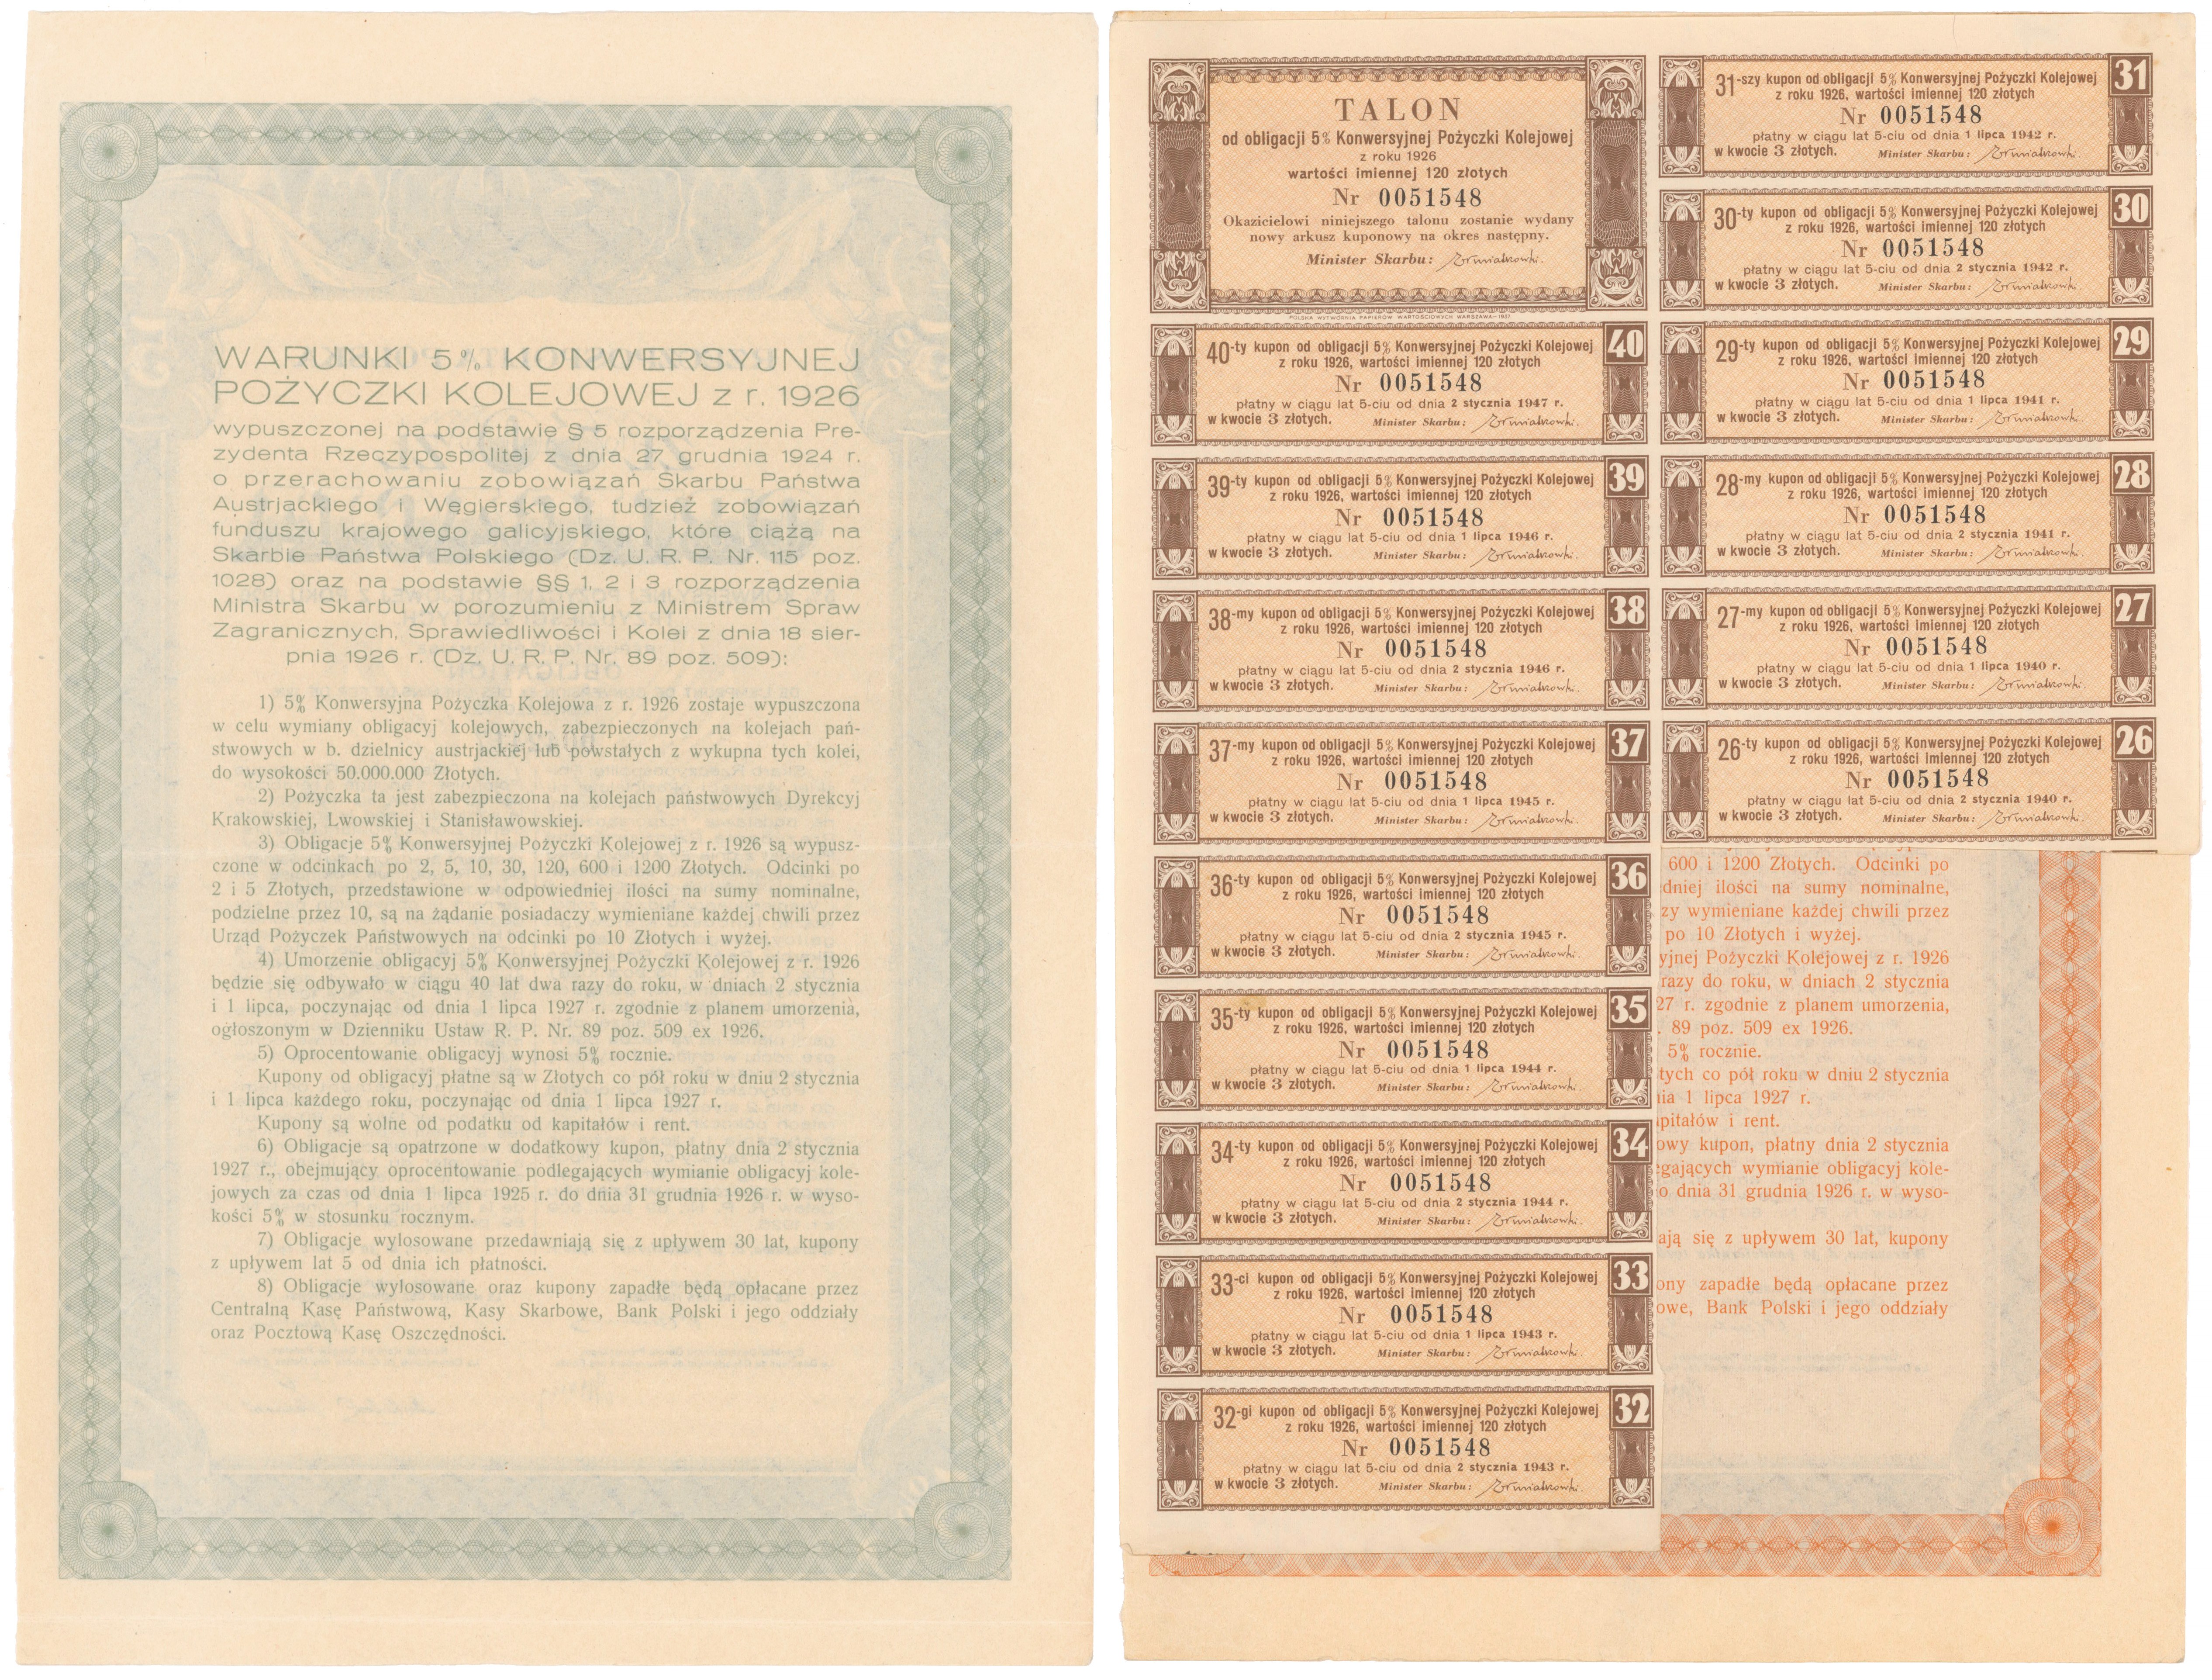 WARUNKI 5% KONWERSYJNEJ
POŻYCZKI KOLEJOWEJ z r. 1926
wypuszczonej na podstawie § 5 rozporządzenia Pre-
zydenta Rzeczypospolitej z dnia 27 grudnia 1924 r.
o przerachowaniu zobowiązań Skarbu Państwa
Austrjackiego i Węgierskiego, tudzież zobowiązań
funduszu krajowego galicyjskiego, które ciążą na
Skarbie Państwa Polskiego (Dz. U. R. P. Nr. 115 poz.
1028) oraz na podstawie §§ 1, 2 i 3 rozporządzenia
Ministra Skarbu w porozumieniu z Ministrem Spraw
Zagranicznych, Sprawiedliwości i Kolei z dnia 18 sier-
pnia 1926 r. (Dz. U. R. P. Nr. 89 poz. 509):
1) 5% Konwersyjna Pożyczka Kolejowa z r. 1926 zostaje wypuszczona
w celu wymiany obligacyj kolejowych, zabezpieczonych na kolejach pań-
stwowych w b. dzielnicy austrjackiej lub powstałych z wykupna tych kolei,
do wysokości 50.000.000 Złotych.
2) Pożyczka ta jest zabezpieczona na kolejach państwowych Dyrekcyj
Krakowskiej, Lwowskiej i Stanisławowskiej.
3) Obligacje 5% Konwersyjnej Pożyczki Kolejowej z r. 1926 są wypusz-
czone w odcinkach po 2, 5, 10, 30, 120, 600 i 1200 Złotych. Odcinki po
2 i 5 Złotych, przedstawione w odpowiedniej ilości na sumy nominalne,
podzielne przez 10, są na żądanie posiadaczy wymieniane każdej chwili przez
Urząd Pożyczek Państwowych na odcinki po 10 Złotych i wyżej.
4) Umorzenie obligacyj 5% Konwersyjnej Pożyczki Kolejowej z r. 1926
będzie się odbywało w ciągu 40 lat dwa razy do roku, w dniach 2 stycznia
i 1 lipca, poczynając od dnia 1 lipca 1927 r. zgodnie z planem umorzenia,
ogłoszonym w Dzienniku Ustaw R. P. Nr. 89 poz. 509 ex 1926.
5) Oprocentowanie obligacyj wynosi 5% rocznie.
Kupony od obligacyj płatne są w Złotych co pół roku w dniu 2 stycznia
i 1 lipca każdego roku, poczynając od dnia 1 lipca 1927 r.
Kupony są wolne od podatku od kapitałów i rent.
6) Obligacje są opatrzone w dodatkowy kupon, płatny dnia 2 stycznia
1927 r., obejmujący oprocentowanie podlegających wymianie obligacyj kole-
jowych za czas od dnia 1 lipca 1925 r. do dnia 31 grudnia 1926 r. w wyso-
kości 5% w stosunku rocznym.
7) Obligacje wylosowane przedawniają się z upływem 30 lat, kupony
z upływem lat 5 od dnia ich płatności.
8) Obligacje wylosowane oraz kupony zapadłe będą opłacane przez
Centralną Kasę Państwową, Kasy Skarbowe, Bank Polski i jego oddziały
oraz Pocztową Kasę Oszczędności.
TALON
od obligacji 5% Konwersyjnej Pożyczki Kolejowej
z roku 1926
wartości imiennej 120 złotych
Nr 0051548
Okazicielowi niniejszego talonu zostanie wydany
nowy arkusz kuponowy na okres następny.
Minister Skarbu:
POLSKA WYTWÓRNIA PAPIERÓW WARTOŚCIOWYCH WARSZAWA-1937
40-ty kupon od obligacji 5% Konwersyjnej Pożyczki Kolejowej 40
z roku 1926, wartości imiennej 120 złotych
Nr 0051548
płatny w ciągu lat 5-ciu od dnia 2 stycznia 1947 r.
w kwocie 3 złotych. Minister Skarbu:
39-ty kupon od obligacji 5% Konwersyjnej Pożyczki Kolejowej 39
z roku 1926, wartości imiennej 120 złotych
Nr 0051548
płatny w ciągu lat 5-ciu od dnia 1 lipca 1946 r.
w kwocie 3 złotych. Minister Skarbu:
38-my kupon od obligacji 5% Konwersyjnej Pożyczki Kolejowej 38
z roku 1926, wartości imiennej 120 złotych
Nr 0051548
płatny w ciągu lat 5-ciu od dnia 2 stycznia 1946 r.
w kwocie 3 złotych. Minister Skarbu:
37-my kupon od obligacji 5% Konwersyjnej Pożyczki Kolejowej 37
z roku 1926, wartości imiennej 120 złotych
Nr 0051548
płatny w ciągu lat 5-ciu od dnia 1 lipca 1945 r.
w kwocie 3 złotych. Minister Skarbu:
36-ty kupon od obligacji 5% Konwersyjnej Pożyczki Kolejowej 36
z roku 1926, wartości imiennej 120 złotych
Nr 0051548
płatny w ciągu lat 5-ciu od dnia 2 stycznia 1945 r.
w kwocie 3 złotych. Minister Skarbu:
35-ty kupon od obligacji 5% Konwersyjnej Pożyczki Kolejowej 35
z roku 1926, wartości imiennej 120 złotych
Nr 0051548
płatny w ciągu lat 5-ciu od dnia 1 lipca 1944 r.
w kwocie 3 złotych. Minister Skarbu:
34-ty kupon od obligacji 5% Konwersyjnej Pożyczki Kolejowej 34
z roku 1926, wartości imiennej 120 złotych
Nr 0051548
płatny w ciągu lat 5-ciu od dnia 2 stycznia 1944 r.
w kwocie 3 złotych. Minister Skarbu:
33-ci kupon od obligacji 5% Konwersyjnej Pożyczki Kolejowej 33
z roku 1926, wartości imiennej 120 złotych
Nr 0051548
płatny w ciągu lat 5-ciu od dnia 1 lipca 1943 r.
w kwocie 3 złotych. Minister Skarbu:
32-gi kupon od obligacji 5% Konwersyjnej Pożyczki Kolejowej 32
z roku 1926, wartości imiennej 120 złotych
Nr 0051548
płatny w ciągu lat 5-ciu od dnia 2 stycznia 1943 r.
w kwocie 3 złotych. Minister Skarbu:
31-szy kupon od obligacji 5% Konwersyjnej Pożyczki Kolejowej 31
z roku 1926, wartości imiennej 120 złotych
Nr 0051548
płatny w ciągu lat 5-ciu od dnia 1 lipca 1942 r.
w kwocie 3 złotych. Minister Skarbu:
30-ty kupon od obligacji 5% Konwersyjnej Pożyczki Kolejowej 30
z roku 1926, wartości imiennej 120 złotych
Nr 0051548
płatny w ciągu lat 5-ciu od dnia 2 stycznia 1942 r.
w kwocie 3 złotych. Minister Skarbu:
29-ty kupon od obligacji 5% Konwersyjnej Pożyczki Kolejowej 29
z roku 1926, wartości imiennej 120 złotych
Nr 0051548
płatny w ciągu lat 5-ciu od dnia 1 lipca 1941 r.
w kwocie 3 złotych. Minister Skarbu:
28-my kupon od obligacji 5% Konwersyjnej Pożyczki Kolejowej 28
z roku 1926, wartości imiennej 120 złotych
Nr 0051548
płatny w ciągu lat 5-ciu od dnia 2 stycznia 1941 r.
w kwocie 3 złotych. Minister Skarbu:
27-my kupon od obligacji 5% Konwersyjnej Pożyczki Kolejowej 27
z roku 1926, wartości imiennej 120 złotych
Nr 0051548
płatny w ciągu lat 5-ciu od dnia 1 lipca 1940 r.
w kwocie 3 złotych. Minister Skarbu:
26-ty kupon od obligacji 5% Konwersyjnej Pożyczki Kolejowej 26
z roku 1926, wartości imiennej 120 złotych
Nr 0051548
płatny w ciągu lat 5-ciu od dnia 2 stycznia 1940 r.
w kwocie 3 złotych. Minister Skarbu:
600 i 1200 Złotych. Odcinki po
dniej ilości na sumy nominalne,
zy wymieniane każdej chwili przez
po 10 Złotych i wyżej.
yjnej Pożyczki Kolejowej z r. 1926
razy do roku, w dniach 2 stycznia
27 r. zgodnie z planem umorzenia,
. 89 poz. 509 ex 1926.
5% rocznie.
tych co pół roku w dniu 2 stycznia
ia 1 lipca 1927 r.
apitałów i rent.
owy kupon, płatny dnia 2 stycznia
egających wymianie obligacyj kole-
o dnia 31 grudnia 1926 r. w wyso-
ają się z upływem 30 lat, kupony
ony zapadłe będą opłacane przez
owe, Bank Polski i jego oddziały